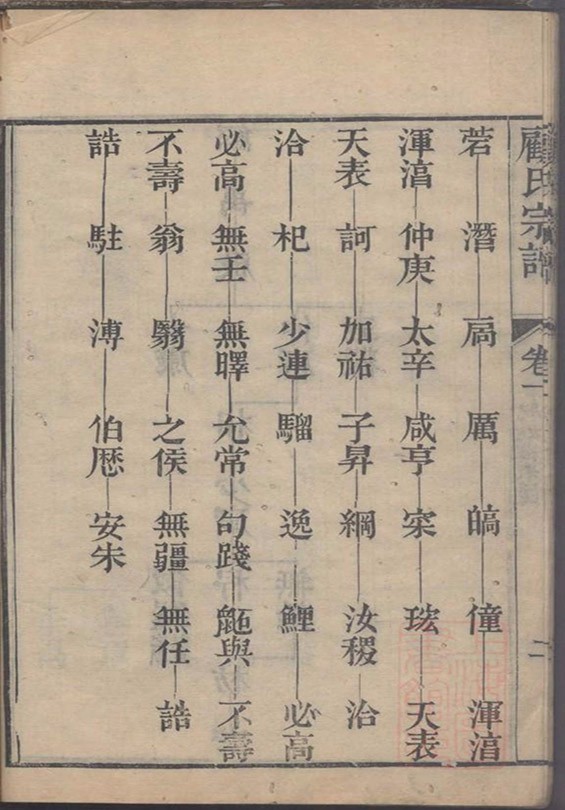 顧氏宗譜
卷一
二
若 潛 扃 厲 皜 僮 渾湻
渾湻 仲庚 太辛 咸亨 寀 玹 天表
天表 訶 加祐 子昇 綱 汝稷 洽
洽 杞 少連 騮 逸 鯉 必高
必高 無壬 無曎 允常 句踐 鼫與 不壽
不壽 翁 翳 之侯 無疆 無任 誥
誥 駐 溥 伯厯 安朱